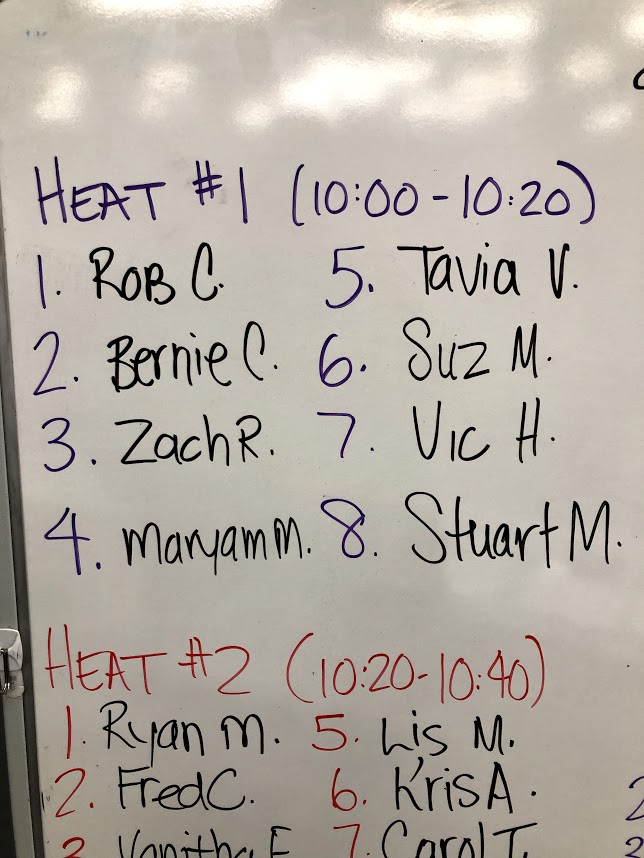 HEAT #1 (10:00-10:20)
1. ROB C. 5. Tavia V.
2. Bernie C. 6. Suz M.
3. Zach R. 7. Vic H.
4. Maryam M. 8. Stuart M.
HEAT #2 (10:20-10:40)
1. Ryan M. 5. Lis M.
2. Fred C. 6. Kris A.
3. Vanitha E 7. Carol T.